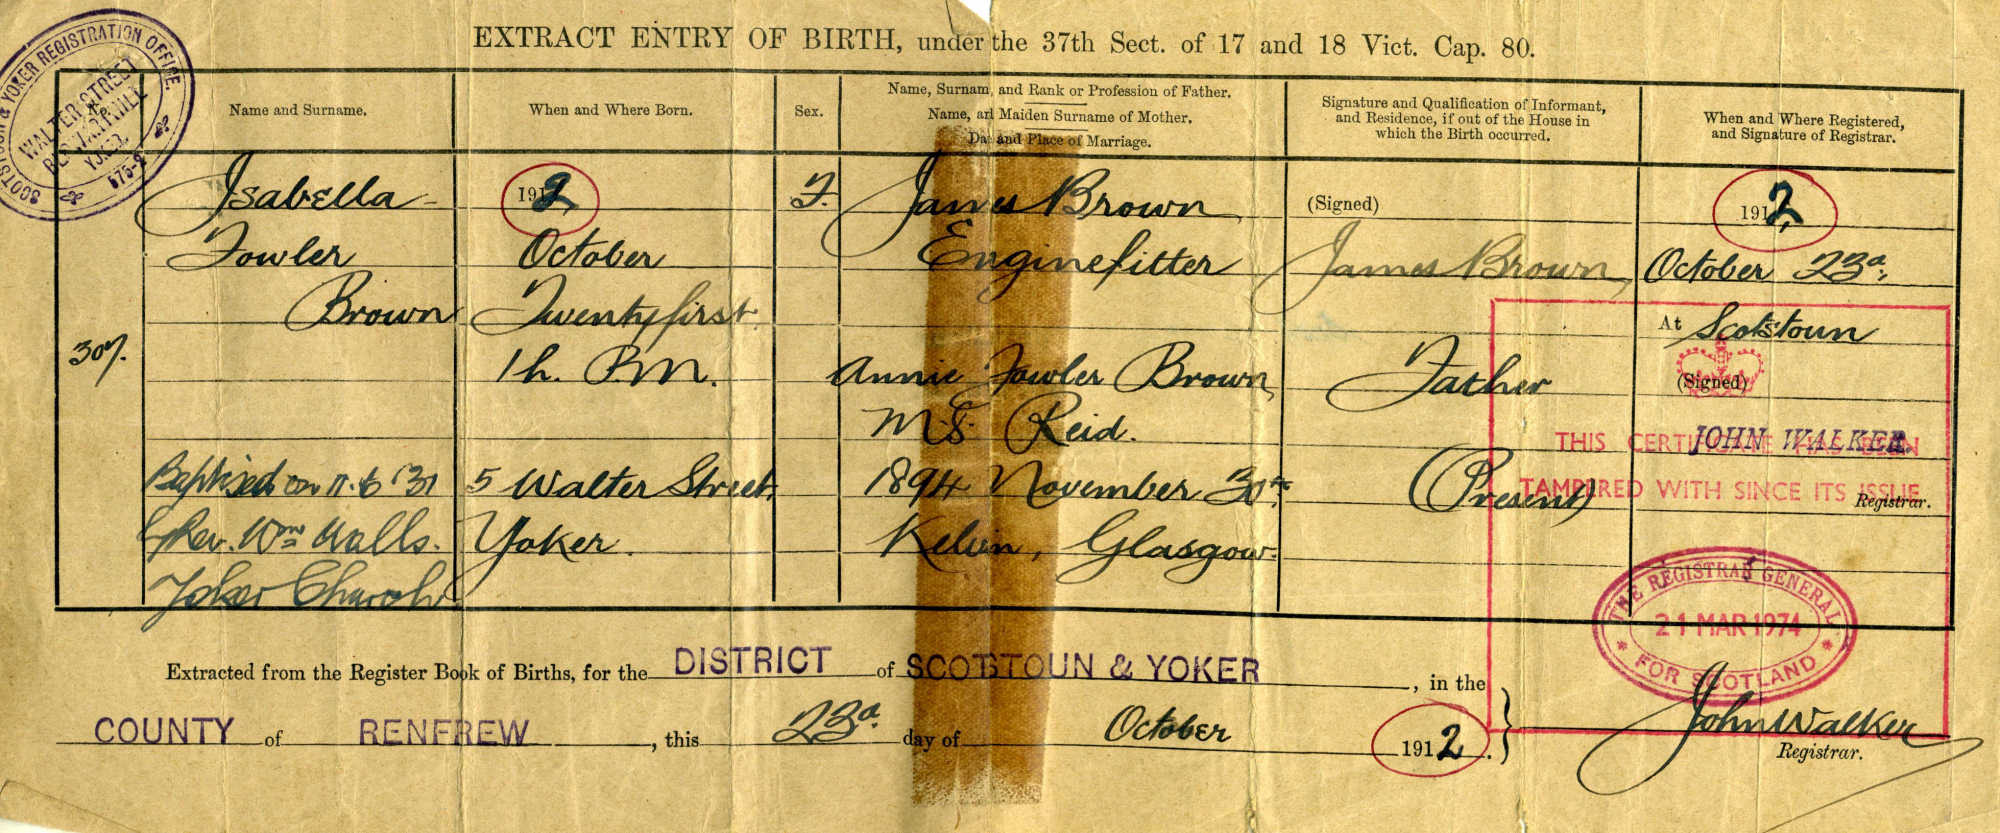 EXTRACT ENTRY OF BIRTH, under the 37th Sect. of 17 and 18 Vict. Cap. 80.
SCOTSTOUN & YOKER REGISTRATION OFFICE.
WALTER STREET
YOKER.
575-2
No.
Name and Surname.
When and Where Born.
Sex.
Name, Surname, and Rank or Profession of Father.
Name, and Maiden Surname of Mother.
Date and Place of Marriage.
Signature and Qualification of Informant,
and Residence, if out of the House in
which the Birth occurred.
When and Where Registered,
and Signature of Registrar.
307.
Isabella
Fowler
Brown
Baptised on 11.6.31
by Rev. Wm Walls.
Yoker Church
1912
October
Twentyfirst
1h. P.M.
5 Walter Street,
Yoker.
F.
James Brown
Enginefitter
Annie Fowler Brown
M.S. Reid.
1894 November 30th
Kelvin, Glasgow.
(Signed)
James Brown,
Father
(Present)
1912,
October 23d,
At Scotstoun
(Signed)
JOHN WALKER.
Registrar.
THIS CERTIFICATE HAS BEEN
TAMPERED WITH SINCE ITS ISSUE
THE REGISTRAR GENERAL
21 MAR 1974
FOR SCOTLAND
Extracted from the Register Book of Births, for the DISTRICT of SCOTSTOUN & YOKER, in the
COUNTY of RENFREW, this 23d. day of October 1912.
John Walker
Registrar.